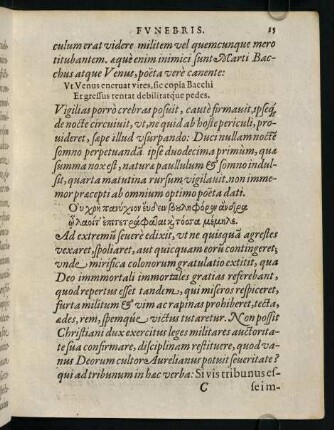 FVNEBRIS. 25
culum erat videre militem vel quemcunque mero
titubantem. aquè enim inimici sunt Marti Bac-
chus atque Venus, poëta verè canente:
Vt Venus eneruat vires, sic copia Bacchi
Et gressus tentat debilitatque pedes.
Vigilias porrò crebras posuit, cautè firmauit, ipseq́;
de nocte circuiuit, vt, ne quid ab hoste periculi, pro-
uideret, sæpe illud vsurpando: Duci nullam noctẽ
somno perpetuandã ipse duodecima primùm, qua
summa nox est, naturæ paullulum & somno indul-
sit, quarta matutina rursum vigilauit, non imme-
mor præcepti ab omnium optimo poëta dati.
Οὐ χρὴ παννύχιον εὕδειν βουληφόρον ἄνδρα
ᾧ λαοί τ' ἐπιτετράφαται κ, τόσσα μέμηλε.
Ad extremũ seuerè edixit, vt ne quisquã agrestes
vexaret, spoliaret, aut quicquam eorũ contingeret;
vnde mirifica colonorum gratulatio extitit, qua
Deo immmortali immortales gratias referebant,
quod repertus esset tandem, qui miseros respiceret,
furta militum & vim ac rapinas prohiberet, tecta,
ædes, rem, spemque victus tutaretur. Non possit
Christiani dux exercitus leges militares auctorita-
te sua confirmare, disciplinam restituere, quod va-
nus Deorum cultor Aurelianus potuit seueritate?
qui ad tribunum in hæc verba: Si vis tribunus es-
C se im-